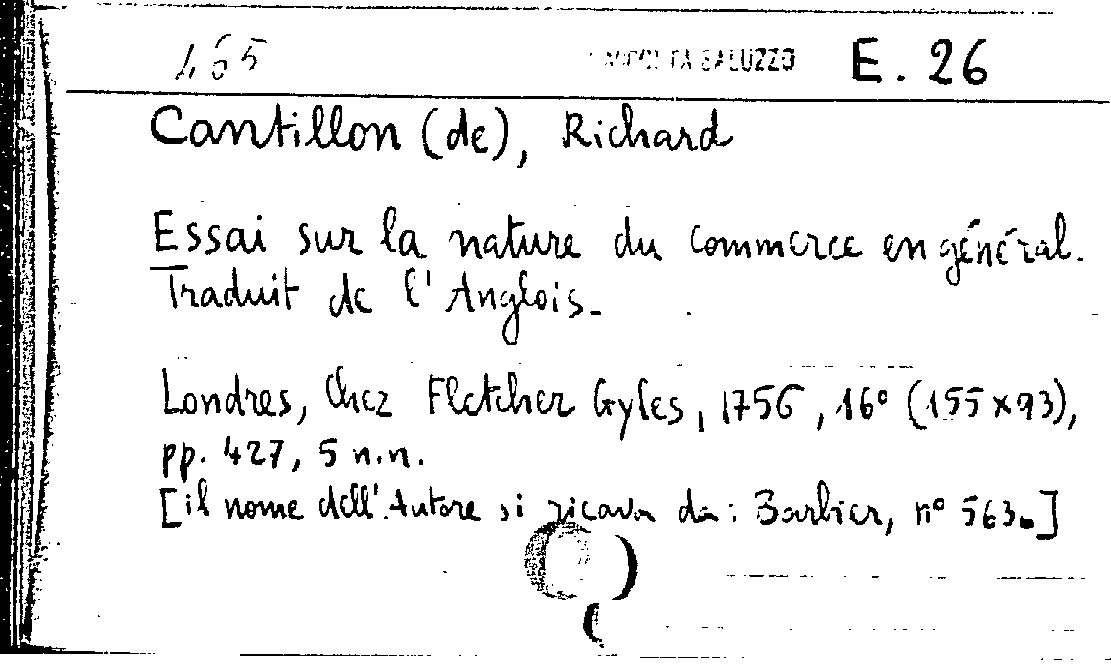 465 SALUZZO E. 26
Cantillon (de), Richard
Essai sur la nature du commerce en général.
Traduit de l'Anglois.
Londres, Chez Fletcher Gyles, 1756, 16° (155 x 93),
pp. 427, 5 n.n.
[il nome dell'Autore si ricava da: Barbier, n° 563.]